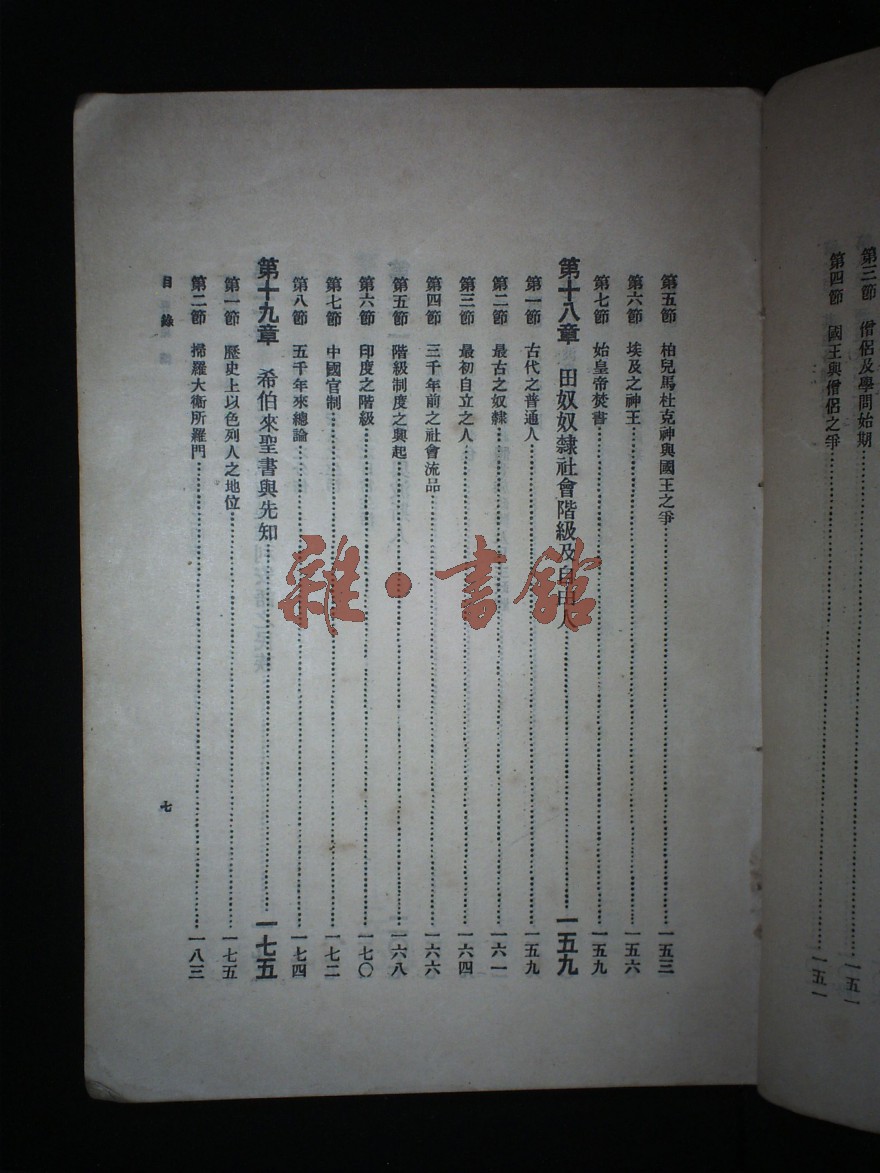 第三節　僧侶及學問始期……一五一
第四節　國王與僧侶之爭……一五一
第五節　柏兒馬杜克神與國王之爭……一五三
第六節　埃及之神王……一五六
第七節　始皇帝焚書……一五九
第十八章　田奴奴隸社會階級及自由人……一五九
第一節　古代之普通人……一五九
第二節　最古之奴隸……一六一
第三節　最初自立之人……一六四
第四節　三千年前之社會流品……一六六
第五節　階級制度之興起……一六八
第六節　印度之階級……一七〇
第七節　中國官制……一七二
第八節　五千年來總論……一七四
第十九章　希伯來聖書與先知……一七五
第一節　歷史上以色列人之地位……一七五
第二節　掃羅大衞所羅門……一八三
目錄　七
雜·書館